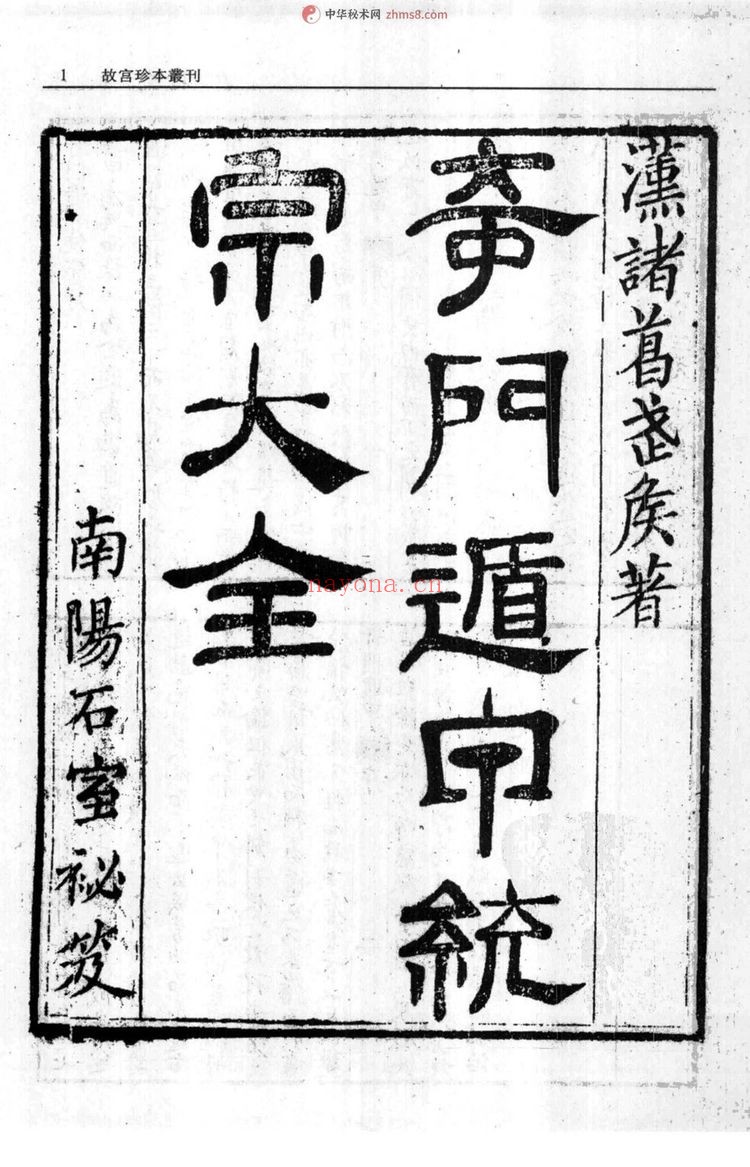 中华秘术网 zhms8.com
1 故宫珍本叢刊
漢諸葛武侯著
奇門遁甲統
宗大全
南陽石室祕笈
nayona.cn